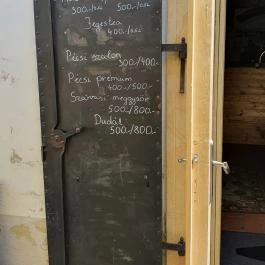 300.-/ 500.-/
Jegestea
400.-/
Pécsi szalon
300/400.-
Pécsi prémium
400.-/500.-
Szarvasi meggysör
500/800.-
Dudás
500.-/800.-